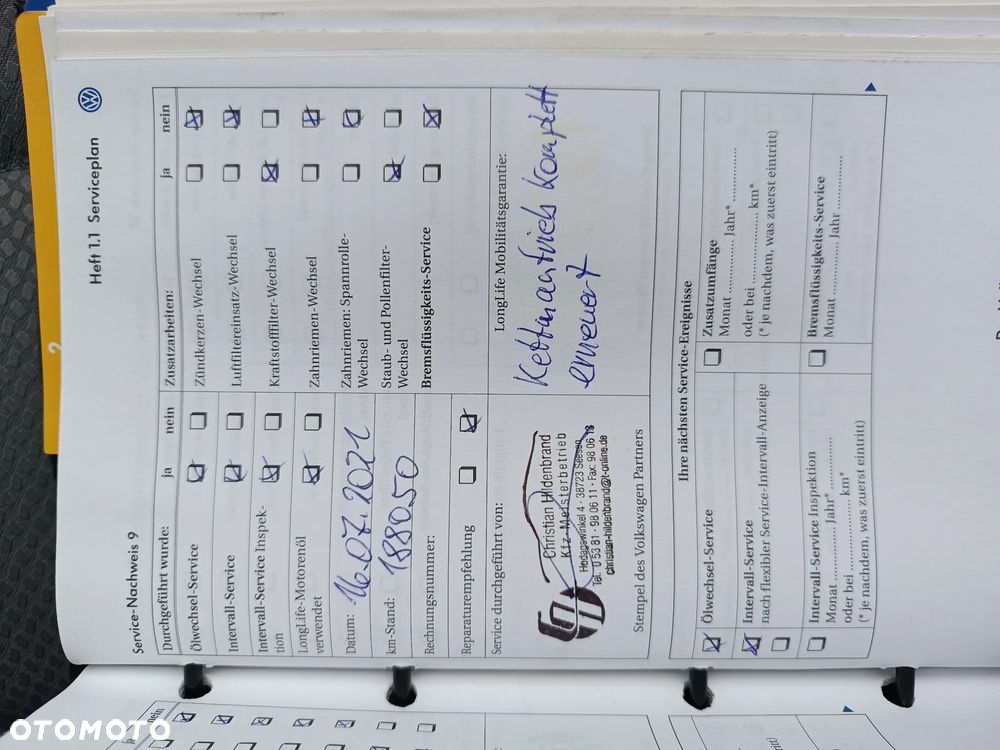 Heft 1.1 Serviceplan
Service-Nachweis 9
Durchgeführt wurde: ja nein
Ölwechsel-Service
Intervall-Service
Intervall-Service Inspek-
tion
LongLife-Motorenöl
verwendet
Datum: 16.07.2021
km-Stand: 188050
Rechnungsnummer:
Reparaturempfehlung
Zusatzarbeiten: ja nein
Zündkerzen-Wechsel
Luftfiltereinsatz-Wechsel
Kraftstofffilter-Wechsel
Zahnriemen-Wechsel
Zahnriemen: Spannrolle-
Wechsel
Staub- und Pollenfilter-
Wechsel
Bremsflüssigkeits-Service
Service durchgeführt von:
Christian Hildenbrand
Kfz-Meisterbetrieb
Hodagswinkel 4 · 38723 Seesen
Tel. 0 53 81 - 98 06 11 · Fax: 98 06 18
christian-hildenbrand@t-online.de
Stempel des Volkswagen Partners
LongLife Mobilitätsgarantie:
Kettenantrieb komplett
erneuert
Ihre nächsten Service-Ereignisse
Ölwechsel-Service
Intervall-Service
nach flexibler Service-Intervall-Anzeige
Intervall-Service Inspektion
Monat ............. Jahr* ...................
oder bei ..................... km*
(* je nachdem, was zuerst eintritt)
Zusatzumfänge
Monat ............. Jahr* ...................
oder bei ..................... km*
(* je nachdem, was zuerst eintritt)
Bremsflüssigkeits-Service
Monat ............. Jahr ...................
2
nein
OTOMOTO